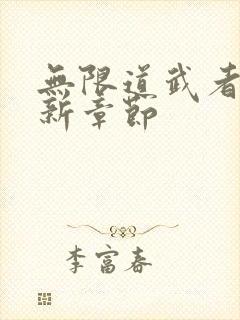 無限道武者
新章節
李富春